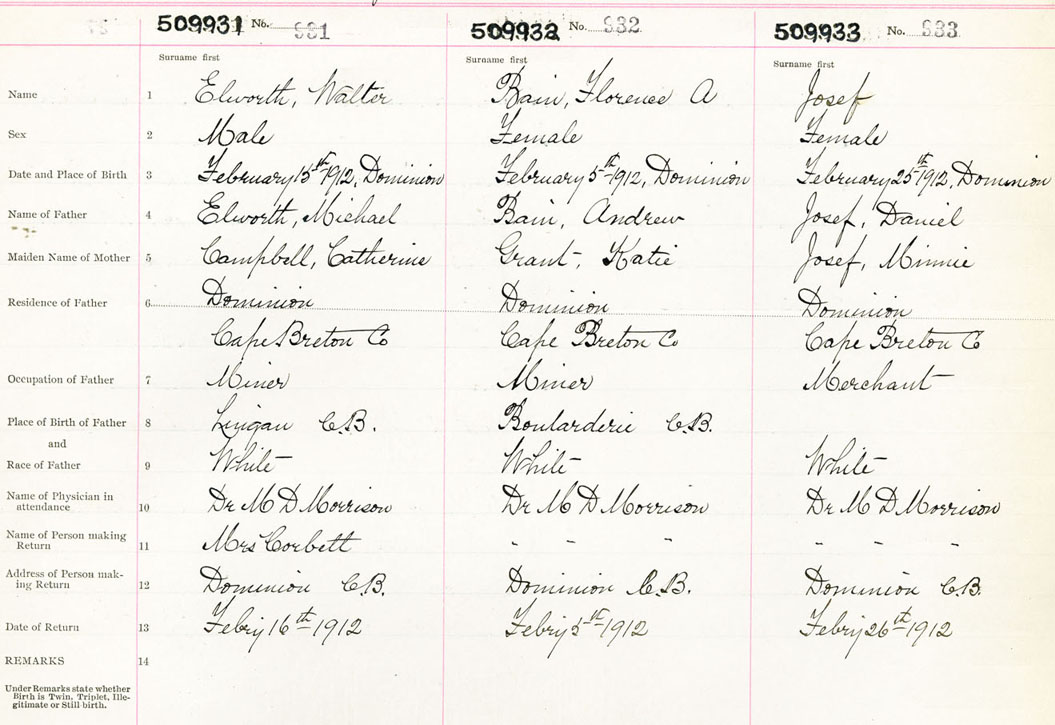 509931 No. 931 509932 No. 932 509933 No. 933
Surname first Surname first Surname first
Name 1 Elworth, Walter Bain, Florence A Josef
Sex 2 Male Female Female
Date and Place of Birth 3 February 15th 1912, Dominion February 5th 1912, Dominion February 25th 1912, Dominion
Name of Father 4 Elworth, Michael Bain, Andrew Josef, Daniel
Maiden Name of Mother 5 Campbell, Catherine Grant, Katie Josef, Minnie
Residence of Father 6 Dominion Dominion Dominion
Cape Breton Co Cape Breton Co Cape Breton Co
Occupation of Father 7 Miner Miner Merchant
Place of Birth of Father 8 Lingan C.B. Boularderie C.B.
and
Race of Father 9 White White White
Name of Physician in
attendance 10 Dr M D Morrison Dr M D Morrison Dr M D Morrison
Name of Person making
Return 11 Mrs Corbett - - - - - -
Address of Person mak-
ing Return 12 Dominion C.B. Dominion C.B. Dominion C.B.
Date of Return 13 Febry 16th 1912 Febry 5th 1912 Febry 26th 1912
REMARKS 14
Under Remarks state whether
Birth is Twin, Triplet, Ille-
gitimate or Still-birth.